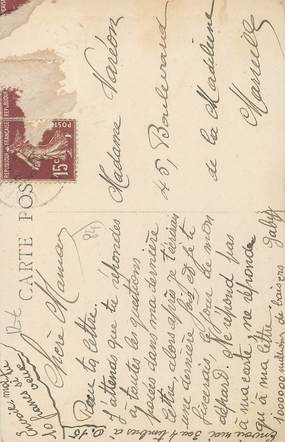 CARTE POSTALE
REPUBLIQUE FRANÇAISE
POSTES
15c
Madame Varéon
45, Boulevard
de la Madeleine
Marseille
84
Chère Maman
Reçu ta lettre.
J'attends que tu répondes
à toutes les questions
posées dans ma dernière
lettre, alors après je t'écrirai
une dernière fois et je te
licencierai, le jour de mon
départ. Ne répond pas
à ma carte, ne réponds
qu'à ma lettre.
1000000 million de baisers
Gaby
Envoie-moi
10 francs
Envoie moi des timbres à
0.15